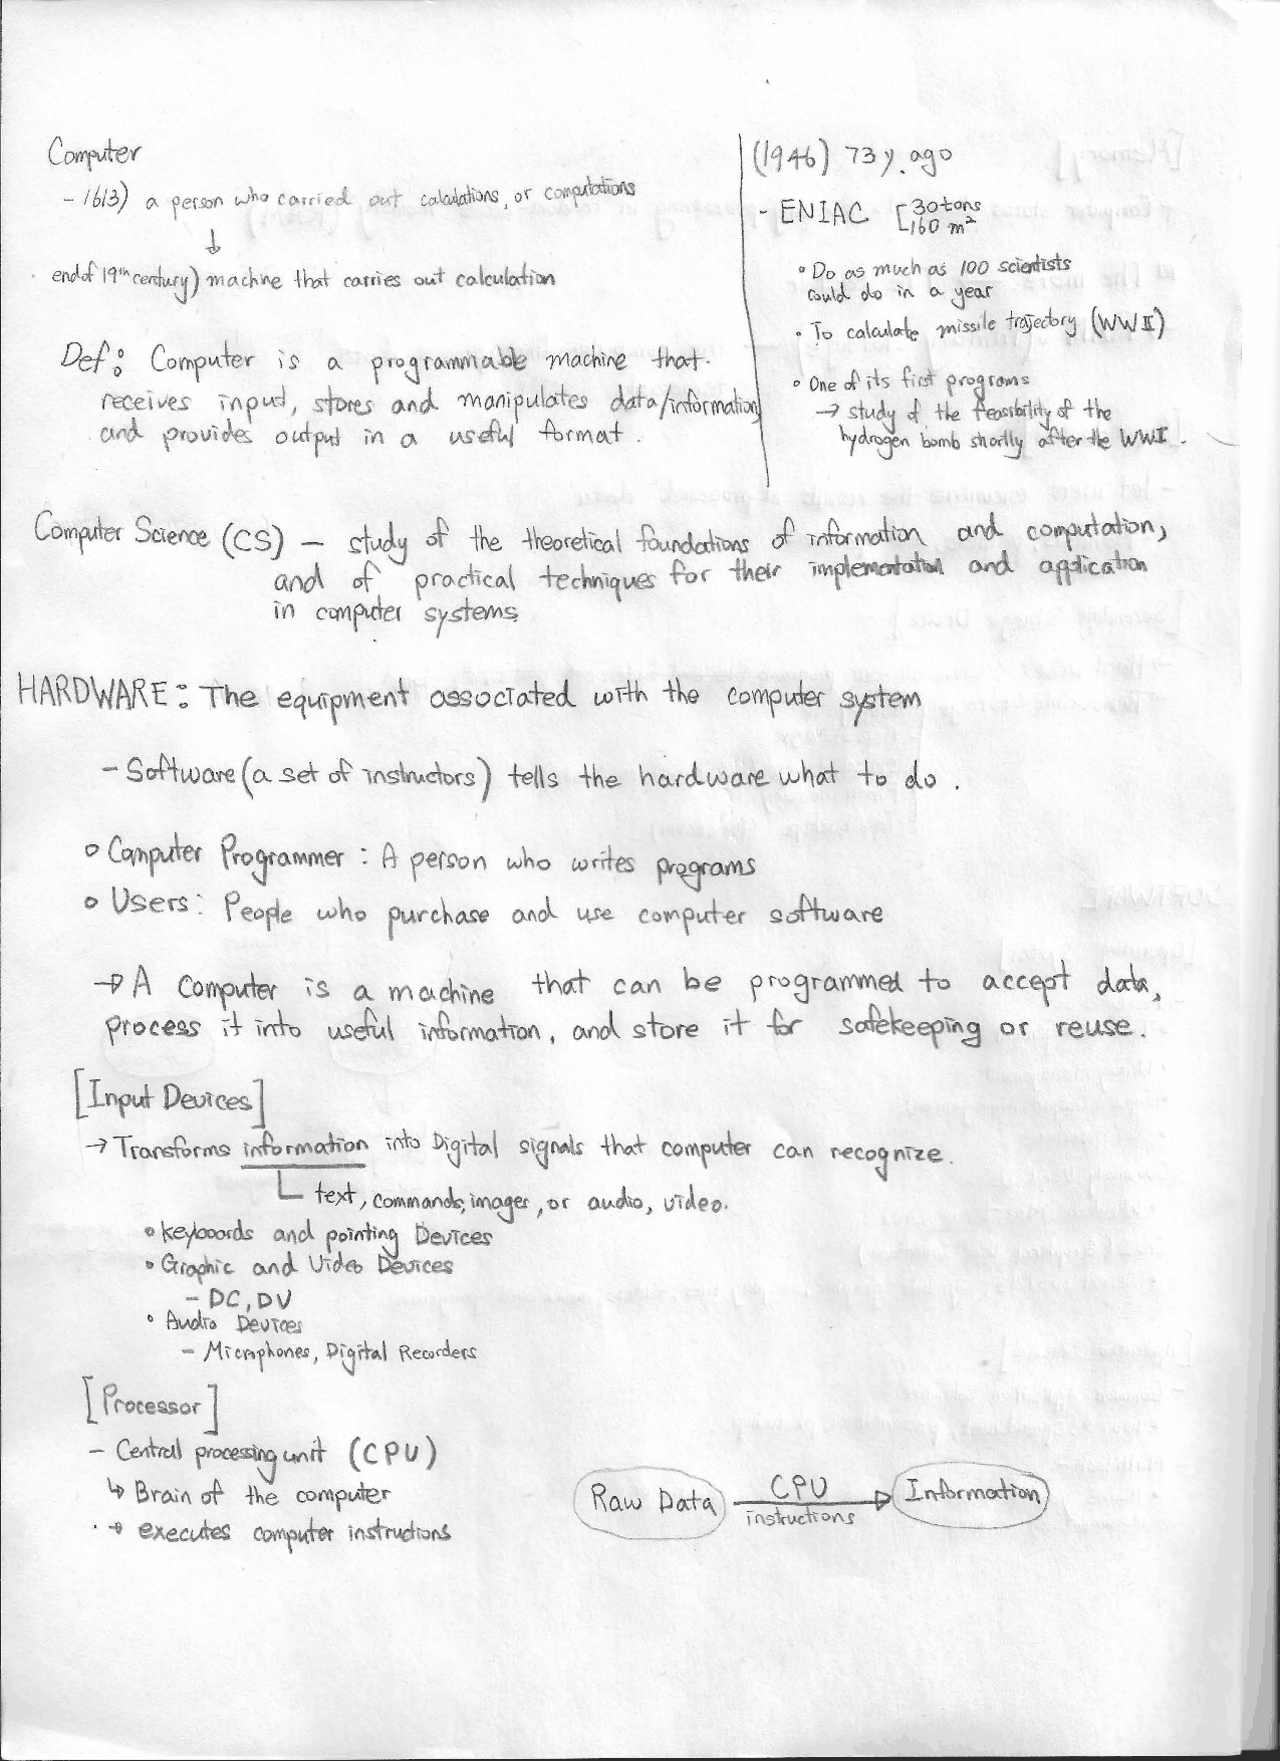 Computer
- 1613) a person who carried out calculations, or computations
↓
end of 19th century) machine that carries out calculation
Def: Computer is a programmable machine that
receives input, stores and manipulates data/information,
and provides output in a useful format.
(1946) 73 y. ago
- ENIAC [30 tons
160 m²
• Do as much as 100 scientists
could do in a year
• To calculate missile trajectory (WW II)
• One of its first programs
→ study of the feasibility of the
hydrogen bomb shortly after the WWI.
Computer Science (CS) - study of the theoretical foundations of information and computation,
and of practical techniques for their implementation and application
in computer systems
HARDWARE: The equipment associated with the computer system
- Software (a set of instructors) tells the hardware what to do.
• Computer Programmer: A person who writes programs
• Users: People who purchase and use computer software
→ A computer is a machine that can be programmed to accept data,
process it into useful information, and store it for safekeeping or reuse.
[Input Devices]
→ Transforms information into Digital signals that computer can recognize.
text, commands, images, or audio, video.
• keyboords and pointing Devices
• Graphic and Video Devices
- DC, DV
• Audio Devices
- Microphones, Digital Recorders
[Processor]
- Central processing unit (CPU)
↳ Brain of the computer
→ executes computer instructions
Raw Data CPU Information
instructions